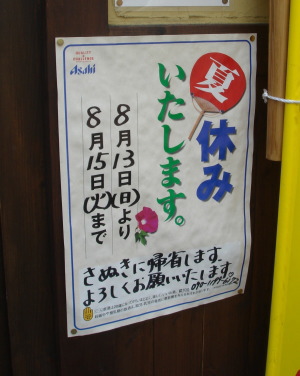 Asahi
夏休み
いたします。
8月13日(日)より
8月15日(火)まで
さぬきに帰省します。
よろしくお願いいたします。